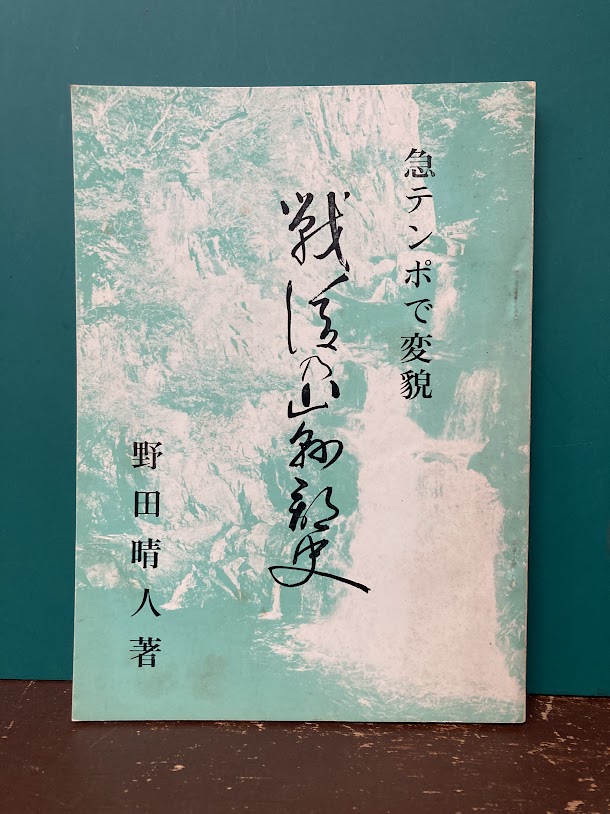 急テンポで変貌
戦後乃山縣郡史
野田晴人著